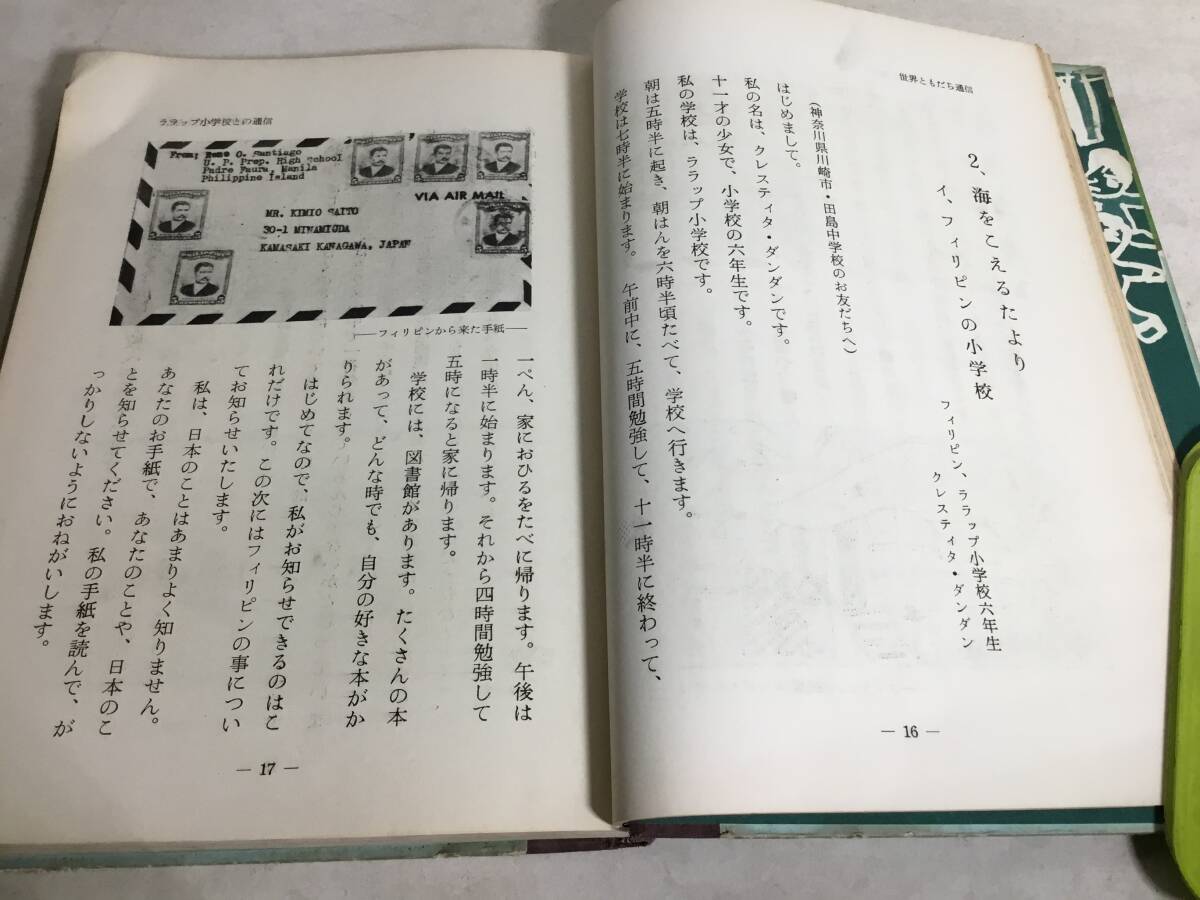 世界ともだち通信
2、海をこえるたより
イ、フィリピンの小学校
フィリピン、ララップ小学校六年生
クレスティタ・ダンダン
(神奈川県川崎市・田島中学校のお友だちへ)
はじめまして。
私の名は、クレスティタ・ダンダンです。
十一才の少女で、小学校の六年生です。
私の学校は、ララップ小学校です。
朝は五時半に起き、朝はんを六時半頃たべて、学校へ行きます。
学校は七時半に始まります。午前中に、五時間勉強して、十一時半に終わって、
— 16 —
ララップ小学校との通信
From: Rene O. Santiago
U. P. Prep. High School
Padre Faura, Manila
Philippine Island
VIA AIR MAIL
MR. KIMIO SAITO
30-1 MINAMIUDA
KAMASAKI KANAGAWA, JAPAN
——フィリピンから来た手紙——
一ぺん、家におひるをたべに帰ります。午後は
一時半に始まります。それから四時間勉強して
五時になると家に帰ります。
学校には、図書館があります。たくさんの本
があって、どんな時でも、自分の好きな本がか
りられます。
はじめてなので、私がお知らせできるのはこ
れだけです。この次にはフィリピンの事につい
てお知らせいたします。
私は、日本のことはあまりよく知りません。
あなたのお手紙で、あなたのことや、日本のこ
とを知らせてください。私の手紙を読んで、が
っかりしないようにおねがいします。
— 17 —